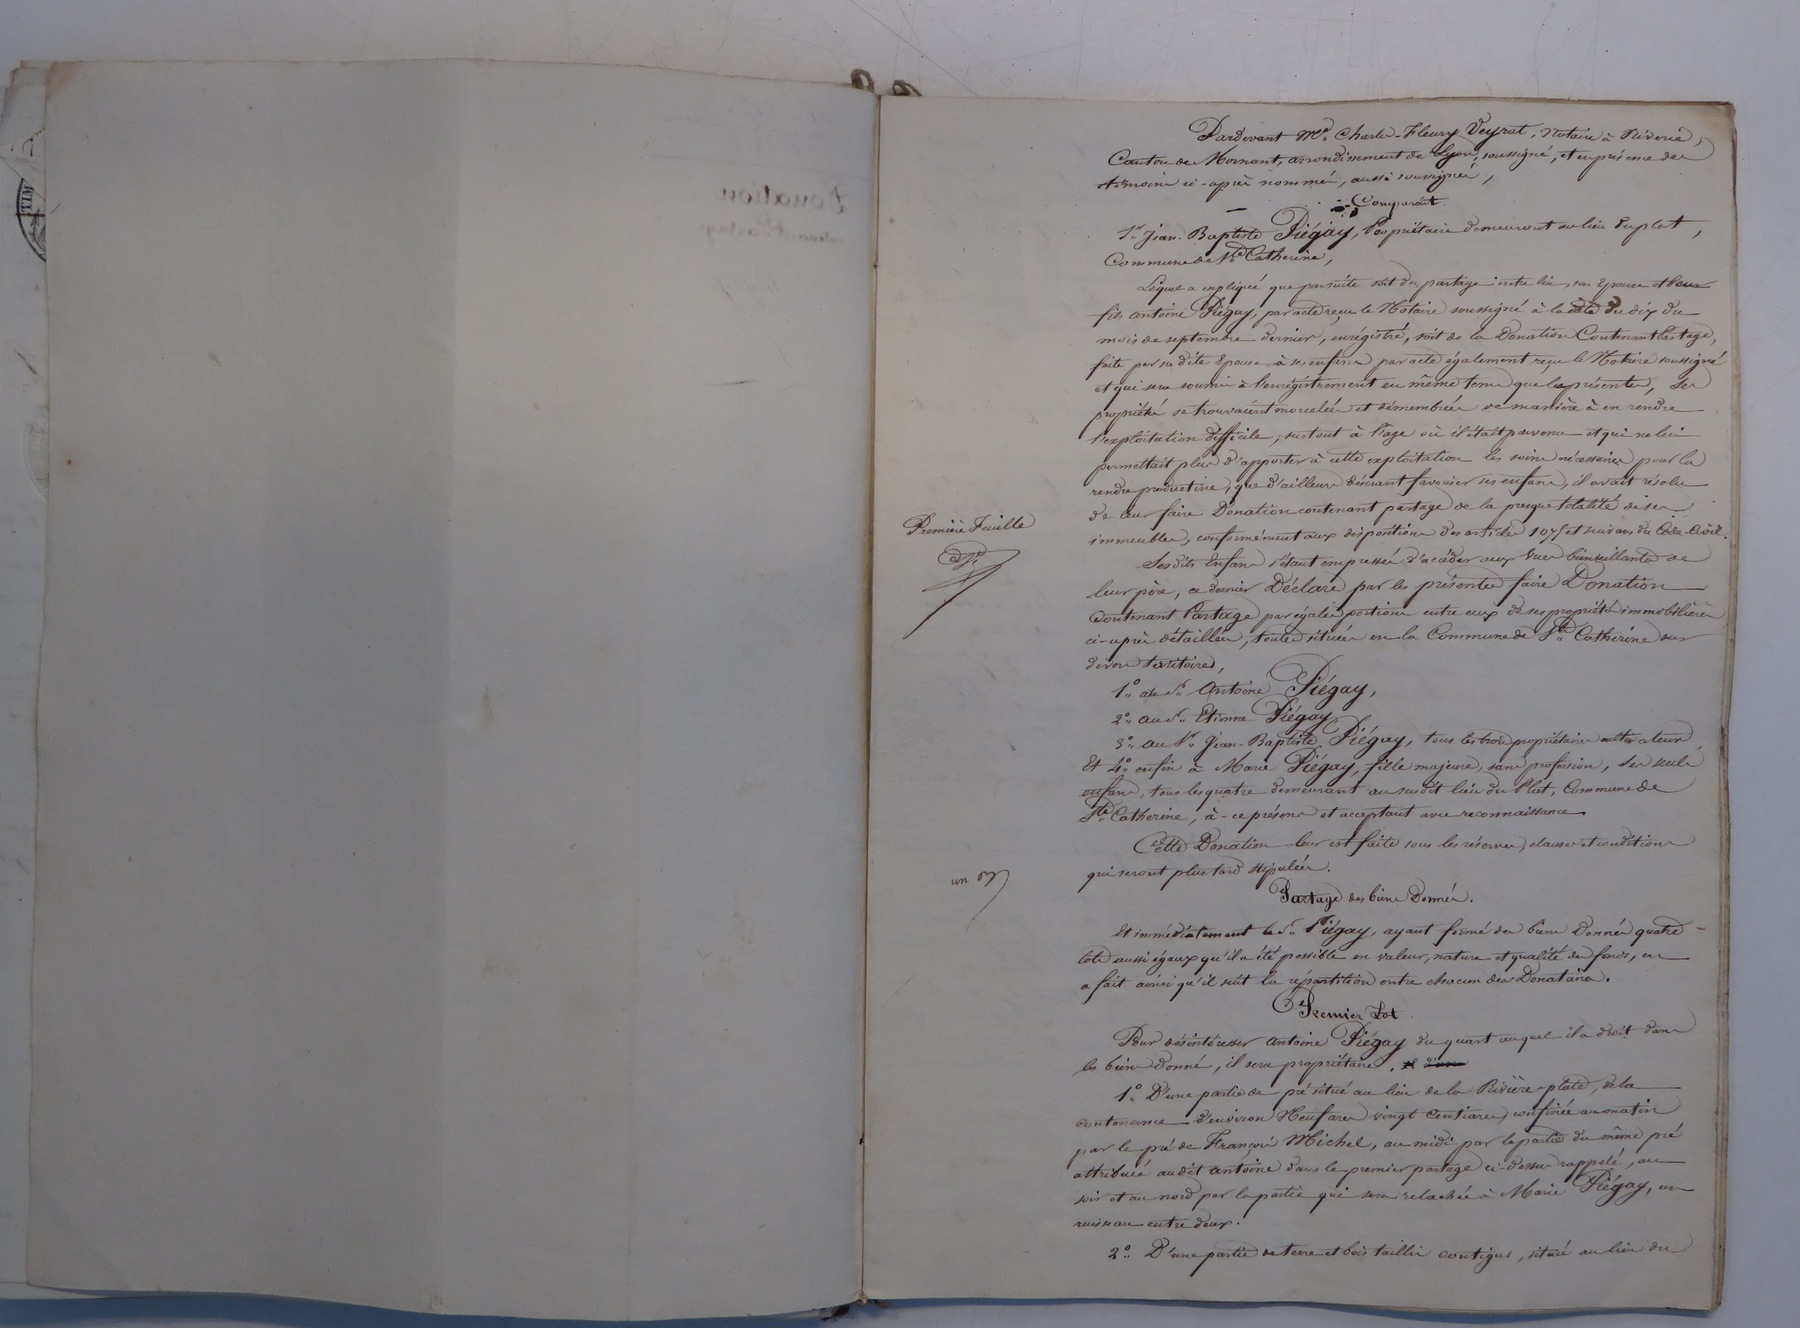 Pardevant Me. Charles-Fleury Veyrat, Notaire à Riverie,
Canton de Mornant, arrondissement de Lyon, soussigné, et en présence des
témoins ci-après nommés, aussi soussignés,
Comparaît
Sr. Jean-Baptiste Piégay, Propriétaire demeurant au lieu du plat,
Commune de Ste Catherine,
Lequel a expliqué que par suite soit du partage entre lui, son Epouse et leur
fils antoine Piégay, par acte reçu le Notaire soussigné à la date du dix du
mois de septembre dernier, enrégistré, soit de la Donation Contenant Partage,
faite par sa dite Epouse à ses enfans par acte également reçu le Notaire soussigné
et qui sera soumis à l'enrégistrement en même tems que les présentes, Ses
propriétés se trouvaient morcelées et démembrées de manière à en rendre
l'exploitation difficile, surtout à l'age où il était parvenu et qui ne lui
permettait plus d'apporter à cette exploitation les soins nécessaires pour la
rendre productive, que d'ailleurs désirant favoriser ses enfans, il avait résolu
de leur faire Donation contenant partage de la presque totalité de ses
immeubles, conformément aux dispositions des articles 1075 et suivans du Code Civil.
Première Feuille
Ses dits Enfans s'étant empressés d'accéder aux vues bienveillantes de
leur père, ce dernier Déclare par les présentes faire Donation
Contenant Partage par égales portions entre eux de ses propriétés immobilières
ci-après détaillées, toutes situées en la Commune de Ste Catherine sur
divers territoires,
1° au Sr. Antoine Piégay,
2° au Sr. Etienne Piégay
3° au Sr. Jean-Baptiste Piégay, tous les trois propriétaires cultivateurs
Et 4° enfin à Marie Piégay, fille majeure, sans profession, Ses seuls
enfans, tous les quatre demeurant au susdit lieu du Plat, Commune de
Ste Catherine, à-ce présens et acceptant avec reconnaissance.
Cette Donation leur est faite sous les réserves, clauses et conditions
qui seront plus tard stipulées.
Partage des biens Donnés.
Et immédiatement le Sr. Piégay, ayant formé des biens Donnés quatre
lots aussi égaux qu'il a été possible en valeur, nature et qualité de fonds, en
a fait ainsi qu'il suit la répartition entre chacun des Donataires.
Premier Lot
Pour désintéresser Antoine Piégay du quart auquel il a droit dans
les biens donnés, il sera propriétaire,
1° D'une partie de pré situé au lieu de la Rivière-plate, de la
contenance d'environ Neuf ares vingt Centiares, confinée au matin
par le pré de François Michel, au midi par la partie du même pré
attribuée audit antoine dans le premier partage ci-dessus rappelé, au
soir et au nord par la partie qui sera relachée à Marie Piégay, un
ruisseau entre deux.
2° D'une partie de terre et bois taillis contigus, située au lieu du